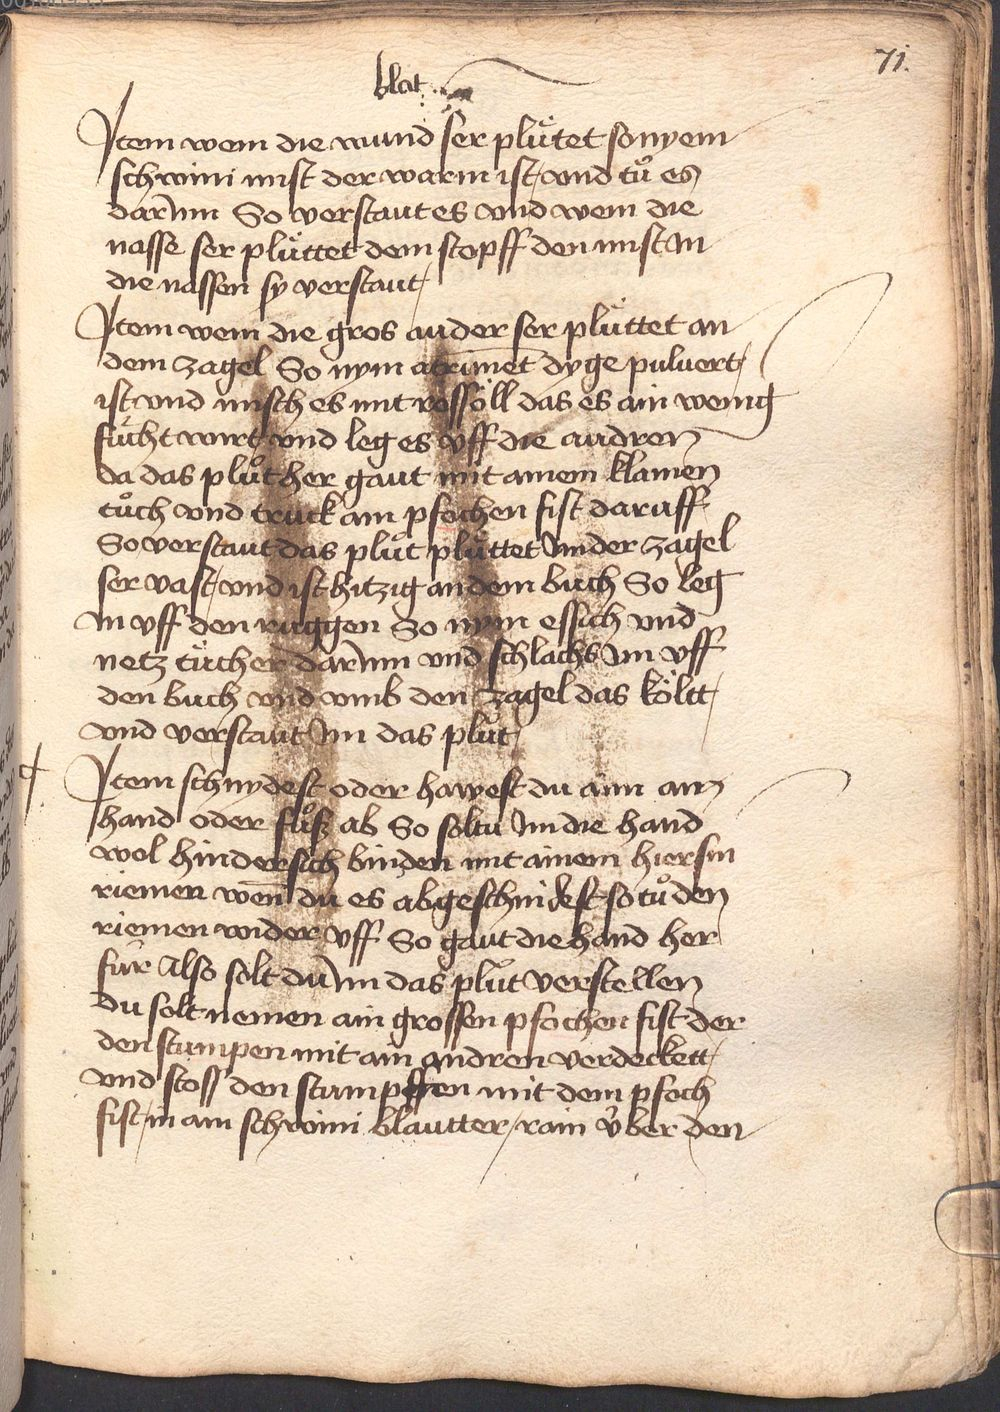 71.
blat
Item wem die wund ser plu̎tet so nyem
schwini mist der warm ist / vnd tů es
darinn So verstaut es vnd wem die
nasse ser plu̎ttet dem stopff den mist in
die nassen sy verstaut /
Item wem die gros auder ser plu̎ttet an
dem zagel So nym dyge puluert /
ist vnd misch es mit rossöll das es ain wenig
fu̎cht wirt vnd leg es vff die audren
da das plůt her gaut mit ainem klainen
tůch vnd truck ain pfochen fist daruff
So verstaut das plůt plu̎ttet Im der zagel
ser vast / vnd ist hitzig an dem buch So leg
in vff den ruggen So nym essich vnd
netz tu̎cher darinn vnd schlachs Im vff
den buch vnd vmb den zagel das költt /
vnd verstaut Im das plůt /
Item schnydest oder hawest du aim ain
hand oder fůß ab So soltu Im die hand
wol hindersich binden mit ainem hiersin
riemen wen̄ du es abgeschnidest so tů den
riemen wider vff So gaut die hand her
fu̎r Also solt du Im das plůt verstellen
du solt nemen ain grossen pfochen fist der
den stumpen mit ain andren verdeckett /
vnd stoss den stumpffen mit dem pfoch
fist / in ain schwini blautter / rain v̎ber den